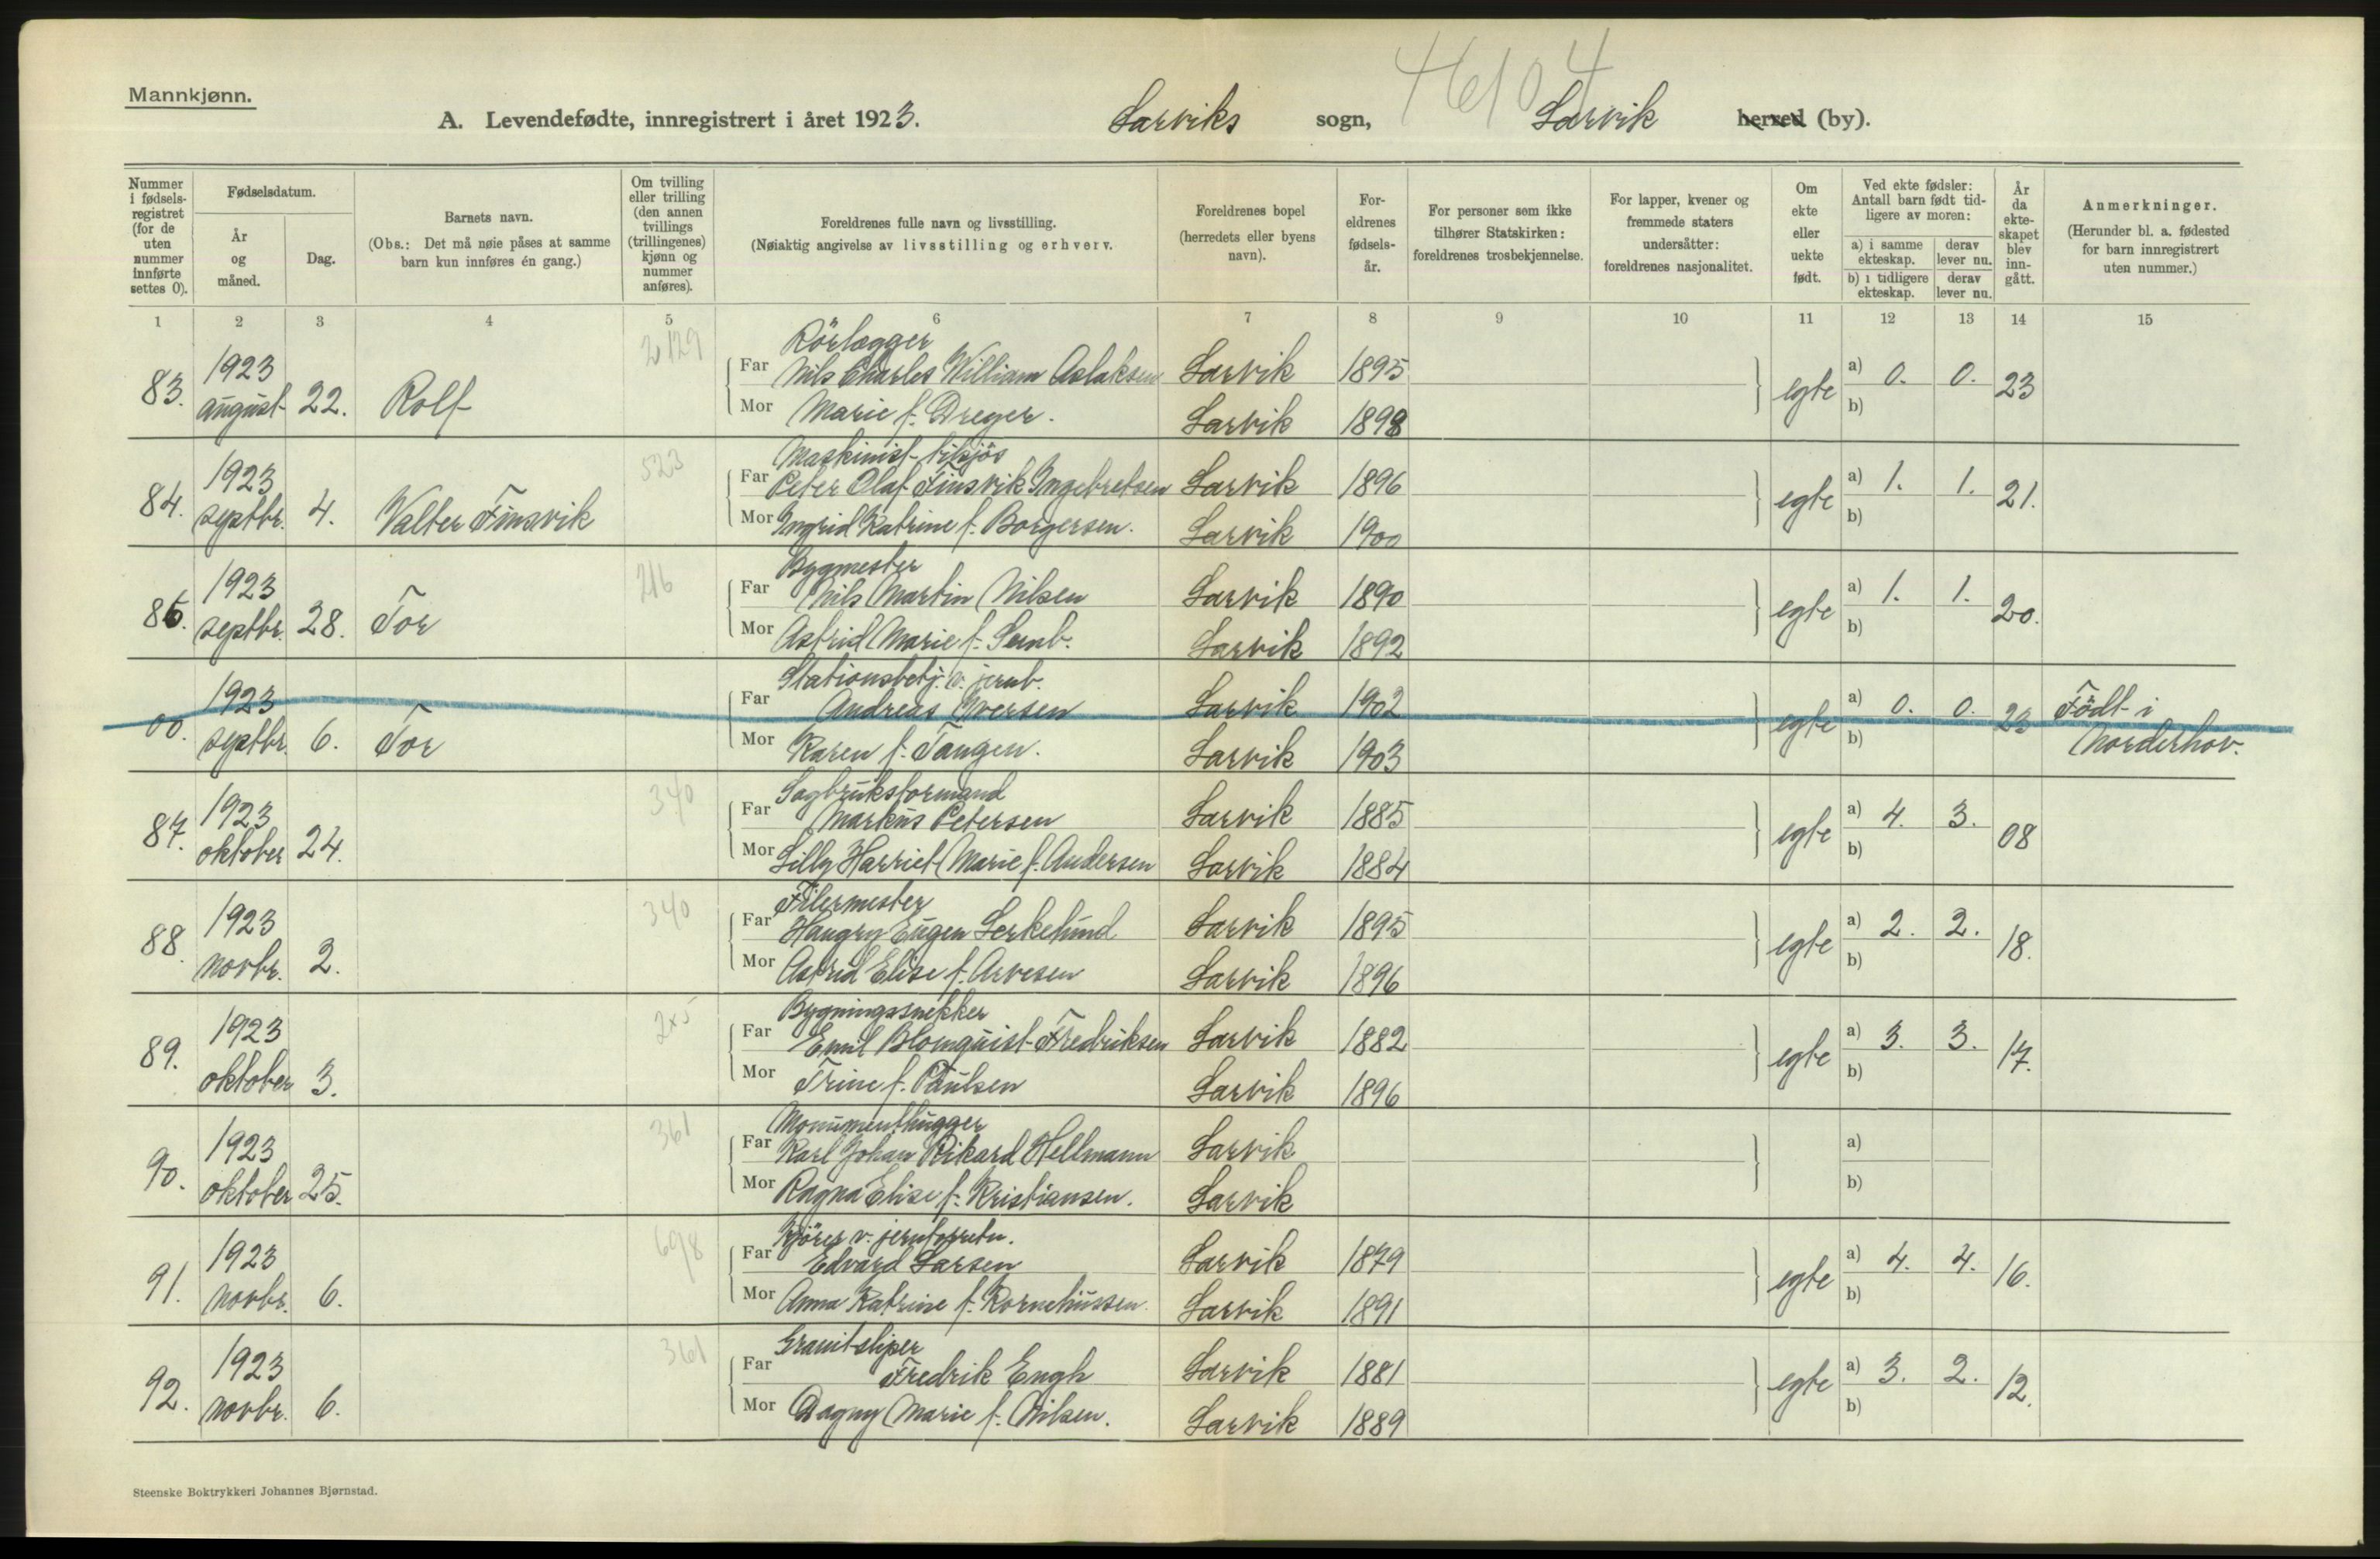 Mannkjønn.
4104
A. Levendefødte, innregistrert i året 1923. Larviks sogn, Larvik herred (by).
Nummer i fødselsregistret (for de uten nummer innførte settes 0).
Fødselsdatum.
År og måned.
Dag.
Barnets navn.
(Obs.: Det må nøie påses at samme barn kun innføres én gang.)
Om tvilling eller trilling (den annen tvillings (trillingenes) kjønn og nummer anføres).
Foreldrenes fulle navn og livsstilling.
(Nøiaktig angivelse av livsstilling og erhverv.
Foreldrenes bopel (herredets eller byens navn).
Foreldrenes fødselsår.
For personer som ikke tilhører Statskirken: foreldrenes trosbekjennelse.
For lapper, kvener og fremmede staters undersåtter: foreldrenes nasjonalitet.
Om ekte eller uekte født.
Ved ekte fødsler: Antall barn født tidligere av moren:
a) i samme ekteskap. derav lever nu.
b) i tidligere ekteskap. derav lever nu.
År da ekteskapet blev inngått.
Anmerkninger.
(Herunder bl. a. fødested for barn innregistrert uten nummer.)
1 2 3 4 5 6 7 8 9 10 11 12 13 14 15
Rörlægger
83. 1923 august 22. Rolf 2129 Far Nils Charles William Aslaksen Larvik 1895 egte a) 0. 0. 23
Mor Marie f. Dreyer. Larvik 1898 b)
Maskinist tilsjös
84. 1923 septbr. 4. Valter Finsvik 523 Far Peter Olaf Finsvik Ingebretsen Larvik 1896 egte a) 1. 1. 21.
Mor Ingrid Katrine f. Borgersen. Larvik 1900 b)
Bygmester
86. 1923 septbr. 28. Tor 216 Far Nils Martin Nilsen Larvik 1890 egte a) 1. 1. 20.
Mor Astrid Marie f. Semb. Larvik 1892 b)
Stationsbetj. v. jernb.
00. 1923 septbr. 6. Tor Far Andreas Iversen Larvik 1902 egte a) 0. 0. 23 Födt i Norderhov.
Mor Karen f. Tangen. Larvik 1903 b)
Sagbruksformand
87. 1923 oktober 24. 340 Far Markus Petersen Larvik 1885 egte a) 4. 3. 08
Mor Lilly Harriet Marie f. Andersen Larvik 1884 b)
Filermester
88. 1923 novbr. 2. 340 Far Haugry Eugen Lerkelund Larvik 1895 egte a) 2. 2. 18.
Mor Astrid Elise f. Arvesen Larvik 1896 b)
Bygningssnekker
89. 1923 oktober 3. Far Emil Blomquist Fredriksen Larvik 1882 egte a) 3. 3. 17.
Mor Trine f. Paulsen Larvik 1896 b)
Monumenthugger
90. 1923 oktober 25. 361 Far Karl Johan Rikard Hellmann Larvik a)
Mor Ragna Elise f. Kristiansen. Larvik b)
Kjörer v.
91. 1923 novbr. 6. 698 Far Edvard Larsen Larvik 1879 egte a) 4. 4. 16.
Mor Anna Katrine f. Korneliussen. Larvik 1891 b)
Granitsliper
92. 1923 novbr. 6. 361 Far Fredrik Engh Larvik 1881 egte a) 3. 2. 12.
Mor Dagny Marie f. Nilsen. Larvik 1889 b)
Steenske Boktrykkeri Johannes Bjørnstad.